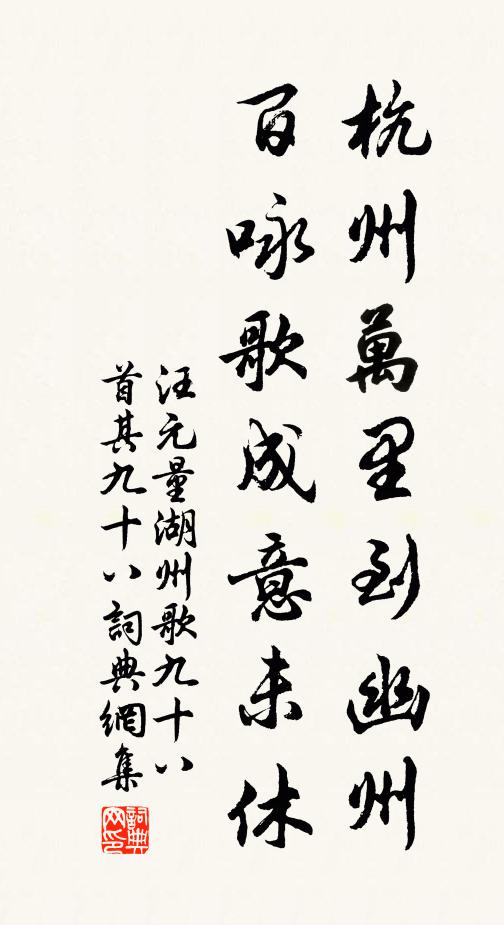 杭州萬里到幽州
百咏歌成意未休
汪元量湖州歌九十八
首其九十八詞典網集
詞典
网印